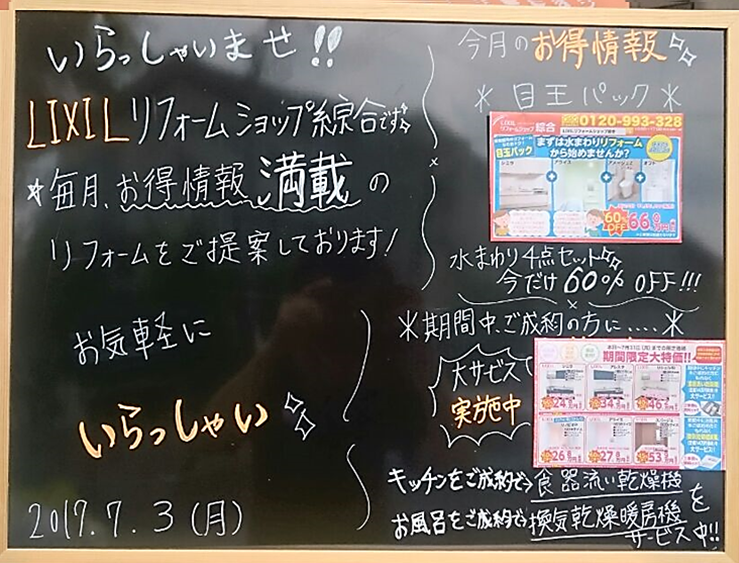 いらっしゃいませ!!
LIXILリフォームショップ綜合です。
☆毎月、お得情報満載の
リフォームをご提案しております!
お気軽に
いらっしゃい
2017.7.3(月)
今月のお得情報
＊目玉パック＊
0120-993-328
LIXIL
リフォームショップ 綜合
目玉パック
まずは水まわりリフォーム
から始めませんか?
60%
OFF
66.8
水まわり4点セット
今だけ60%OFF!!!
＊期間中、ご成約の方に.....＊
大サービス
実施中
期間限定大特価!!
大サービス!
24
34
46
26
27
53
キッチンをご成約で→食器流い乾燥機
お風呂をご成約で→換気乾燥暖房機を
サービス中!!